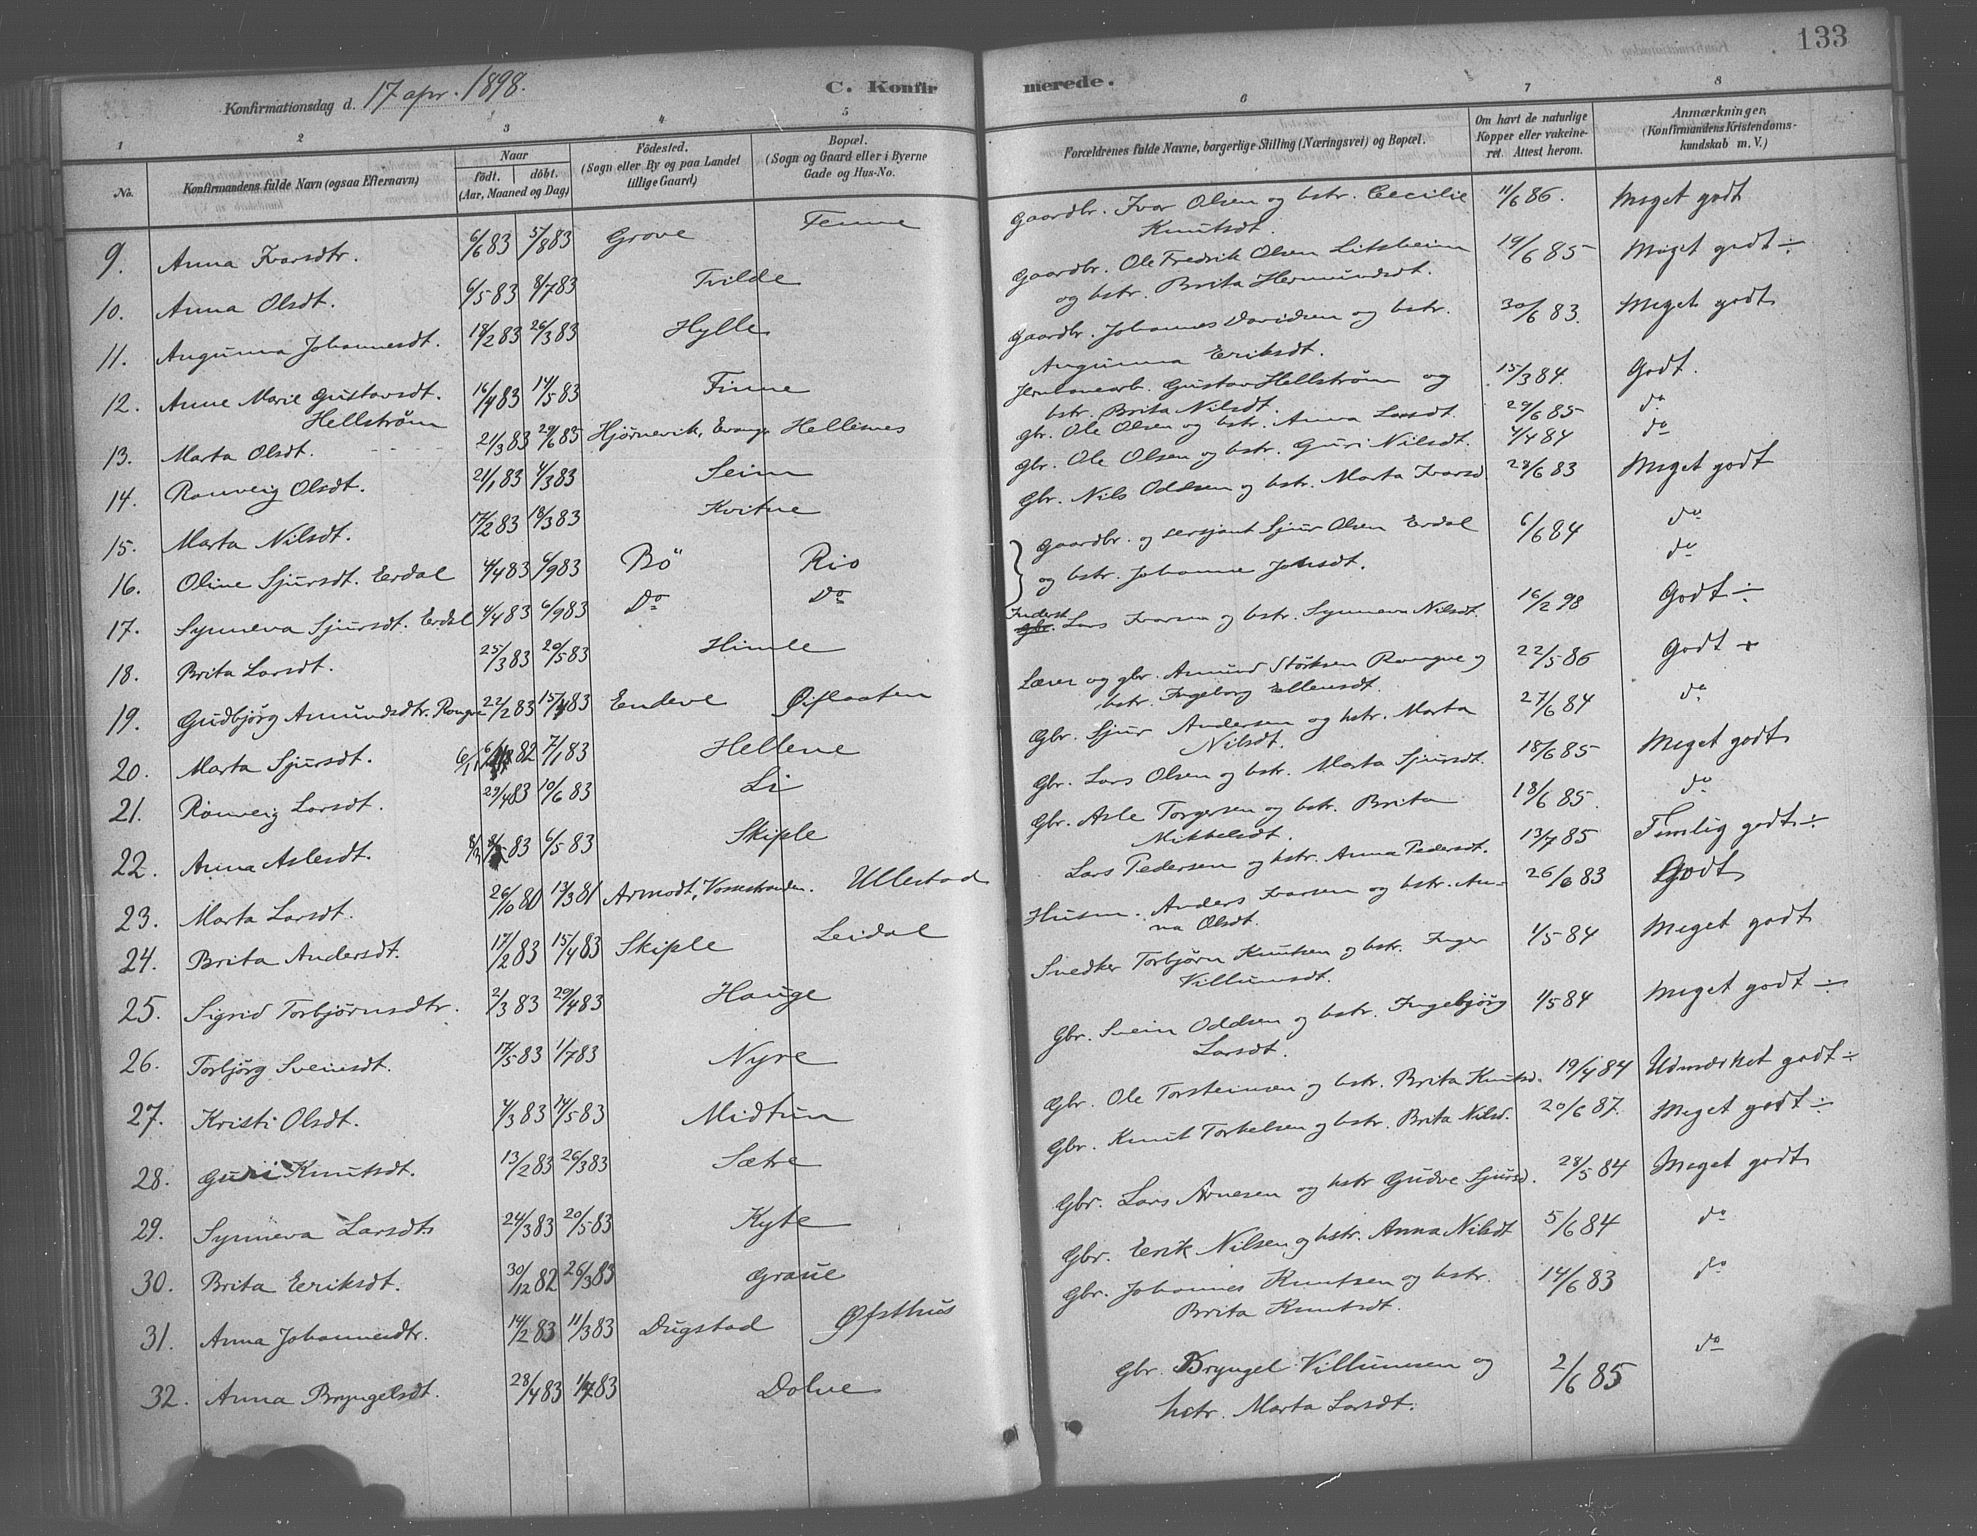 133
Konfirmationsdag d. 17 apr. 1898.
C. Konfirmerede.
1 2 3 4 5 6 7 8
No.
Konfirmandens fulde Navn (ogsaa Efternavn)
Naar
født. døbt.
(Aar, Maaned og Dag)
Fødested.
(Sogn eller By og paa Landet
tillige Gaard)
Bopæl.
(Sogn og Gaard eller i Byerne
Gade og Hus-No.
Forældrenes fulde Navne, borgerlige Stilling (Næringsvei) og Bopæl.
Om havt de naturlige
Kopper eller vakcine-
ret. Attest herom.
Anmærkninger,
(Konfirmandens Kristendoms-
kundskab m. V.)
9. Anna Ivarsdtr. 6/6 83 5/8 83 Grove Tenne Gaardbr. Ivar Olsen og hstr. Cecilie 11/6 86. Meget godt
Knutsdt.
10. Anna Olsdt. 6/5 83 8/7 83 Tvilde Gaardbr. Ole Fredrik Olsen Litsheim 19/6 85 Meget godt ÷
og hstr. Brita Hermundsdt.
11. Angunna Johannesdt. 18/2 83 26/3 83 Hylle Gaardbr. Johannes Davidsen og hstr. 30/6 83. Meget godt
Angunna Eriksdt.
12. Anne Marie Gustavsdt. 16/4 83 14/5 83 Finne Jernbanearb. Gustav Hellstrøm og 15/3 84. Godt.
Hellstrøm hstr. Brita Nilsdt.
13. Marta Olsdt. 21/3 83 29/6 85 Hjørnevik, Evanger Hellesnes gbr. Ole Olsen og hstr. Anna Larsdt. 29/6 85 do
14. Ranveig Olsdt. 21/1 83 4/3 83 Seim gbr. Ole Olsen og hstr. Guri Nilsdt. 4/4 84 do
15. Marta Nilsdt. 17/2 83 18/3 83 Kvitne Gbr. Nils Oddsen og hstr. Marta Ivarsd. 28/6 83 Meget godt
16. Oline Sjursdt. Erdal 4/4 83 6/9 83 Bö Rio Gaardbr. og sersjant Sjur Olsen Erdal 6/6 84 do
17. Synneva Sjursdt. Erdal 4/4 83 6/9 83 Do Do og hstr. Johanne Johnsdt. do
18. Brita Larsdt. 25/3 83 20/5 83 Himle Inderst. gbr. Lars Ivarsen og hstr. Synneva Nilsdt. 16/2 98 Godt ÷
19. Gudbjørg Amundsdtr. Rongve 22/2 83 15/4 83 Endeve Øiflaaten Lærer og gbr. Amund Størksen Rongve og 22/5 86 Godt +
hstr. Ingeborg Ellensdt.
20. Marta Sjursdt. 6/11 82 7/1 83 Hellene Gbr. Sjur Andersen og hstr. Marta 27/6 84 do
Nilsdt.
21. Ranveig Larsdt. 29/4 83 10/6 83 Li Gbr. Lars Olsen og hstr. Marta Sjursdt. 18/6 85 Meget godt
22. Anna Aslesdt. 83 6/5 83 Skiple Gbr. Asle Torgersen og hstr. Brita 18/6 85. do
Mikkelsdt.
23. Marta Larsdt. 26/10 80 13/3 81 Armodt, Vossestranden. Ullestad Lars Pedersen og hstr. Anna Pedersdt. 13/7 85 Temlig godt ÷
24. Brita Andersdt. 17/2 83 15/4 83 Skiple Leidal Husm. Anders Ivarsen og hstr. An- 26/6 83 Godt
na Olsdt.
25. Sigrid Torbjørnsdtr. 2/3 83 29/4 83 Hauge Snedker Torbjørn Knutsen og hstr. Inger 1/5 84 Meget godt
Villumsdt.
26. Torbjørg Sveinsdt. 17/5 83 1/7 83 Nyre Gbr. Svein Oddsen og hstr. Ingebjørg 1/5 84 Meget godt ÷
Larsdt.
27. Kristi Olsdt. 4/3 83 14/5 83 Midtun Gbr. Ole Torsteinsen og hstr. Brita Knutsd. 19/4 84 Udmærket godt ÷
28. Guri Knutsdt. 13/2 83 26/3 83 Sætre Gbr. Knut Torkelsen og hstr. Brita Nilsd. 20/6 87. Meget godt ÷
29. Synneva Larsdt. 24/3 83 20/5 83 Kyte Gbr. Lars Arnesen og hstr Gudve Sjursd. 28/5 84 Meget godt
30. Brita Eriksdt. 30/12 82 26/3 83 Graue Gbr. Erik Nilsen og hstr. Anna Nilsdt 5/6 84 do
31. Anna Johannesdtr. 14/2 83 11/3 83 Dugstad Øfsthus Gbr. Johannes Knutsen og hstr. 14/6 83 do
Brita Knutsdt.
32. Anna Bryngelsdt. 28/4 83 1/7 83 Dolve Gbr. Bryngel Villumsen og 2/6 85 do
hstr. Marta Larsdt.